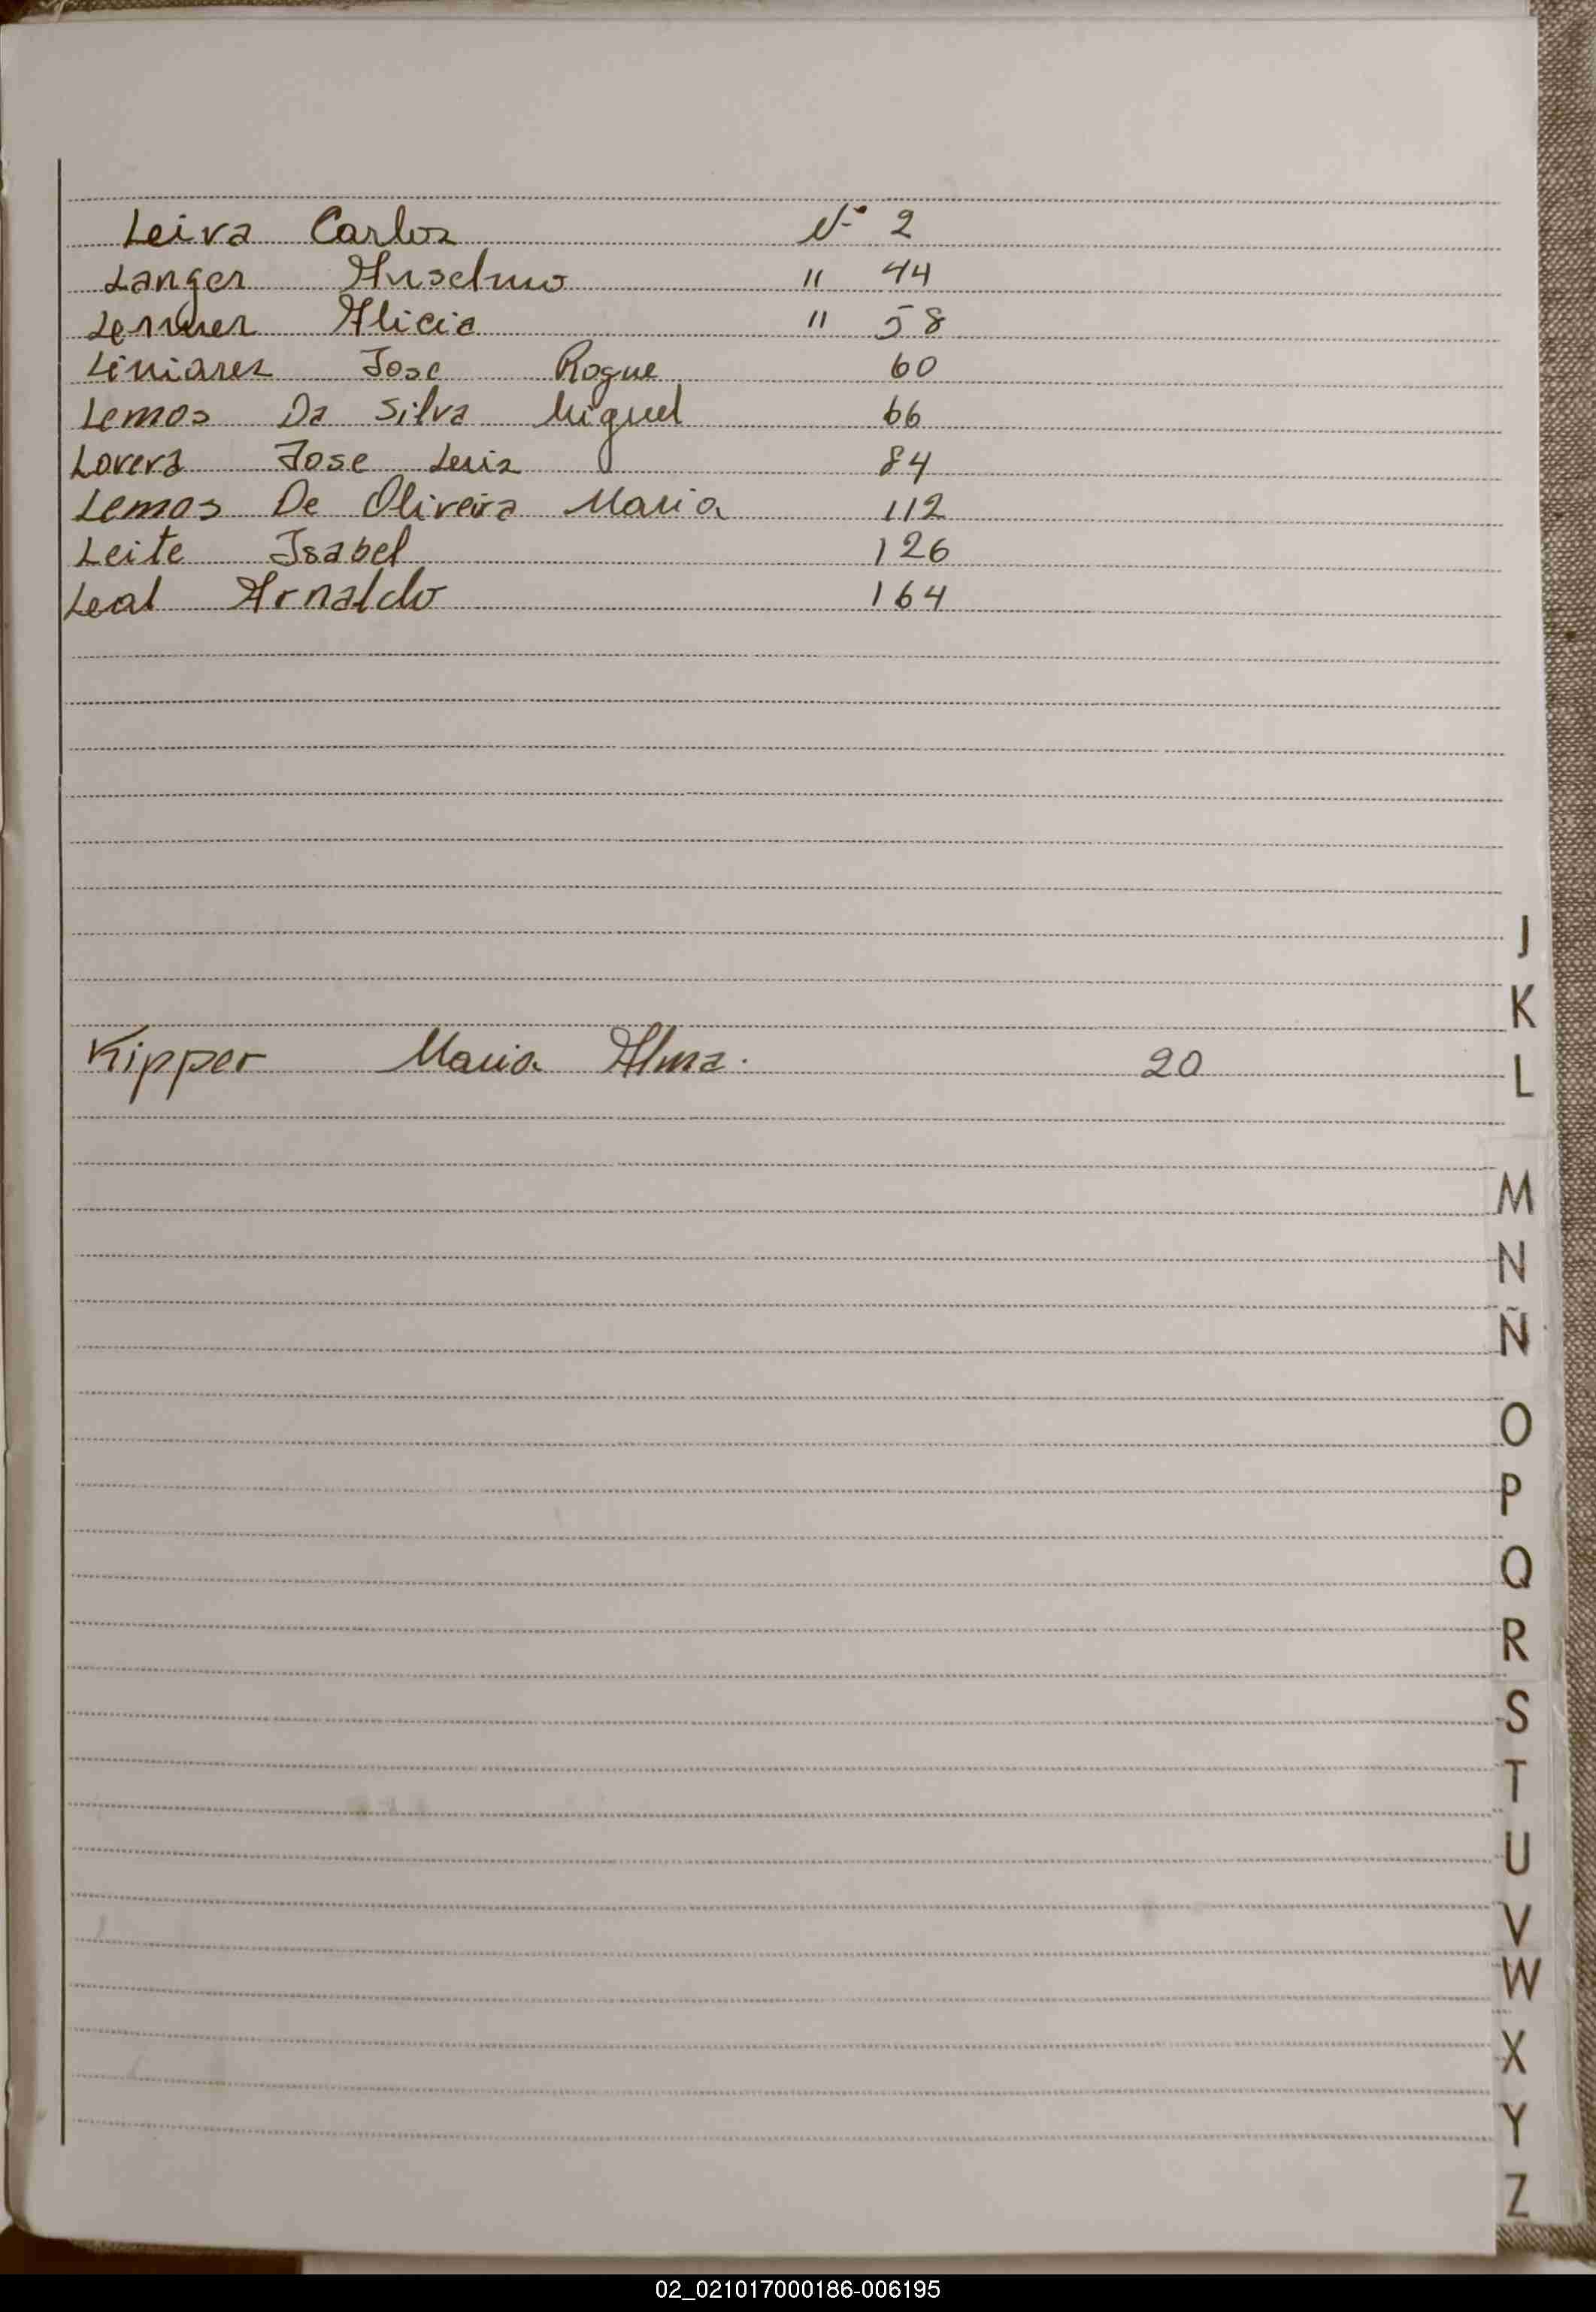 Leiva Carlos N° 2
Langer Anselmo " 44
Lenner Alicia " 58
Liniares Jose Roque 60
Lemos Da Silva Miguel 66
Lovera Jose Luis 84
Lemos De Oliveira Maria 112
Leite Isabel 126
Leal Arnaldo 164
Kipper Maria Alma. 20
J
K
L
M
N
Ñ
O
P
Q
R
S
T
U
V
W
X
Y
Z
02_021017000186-006195